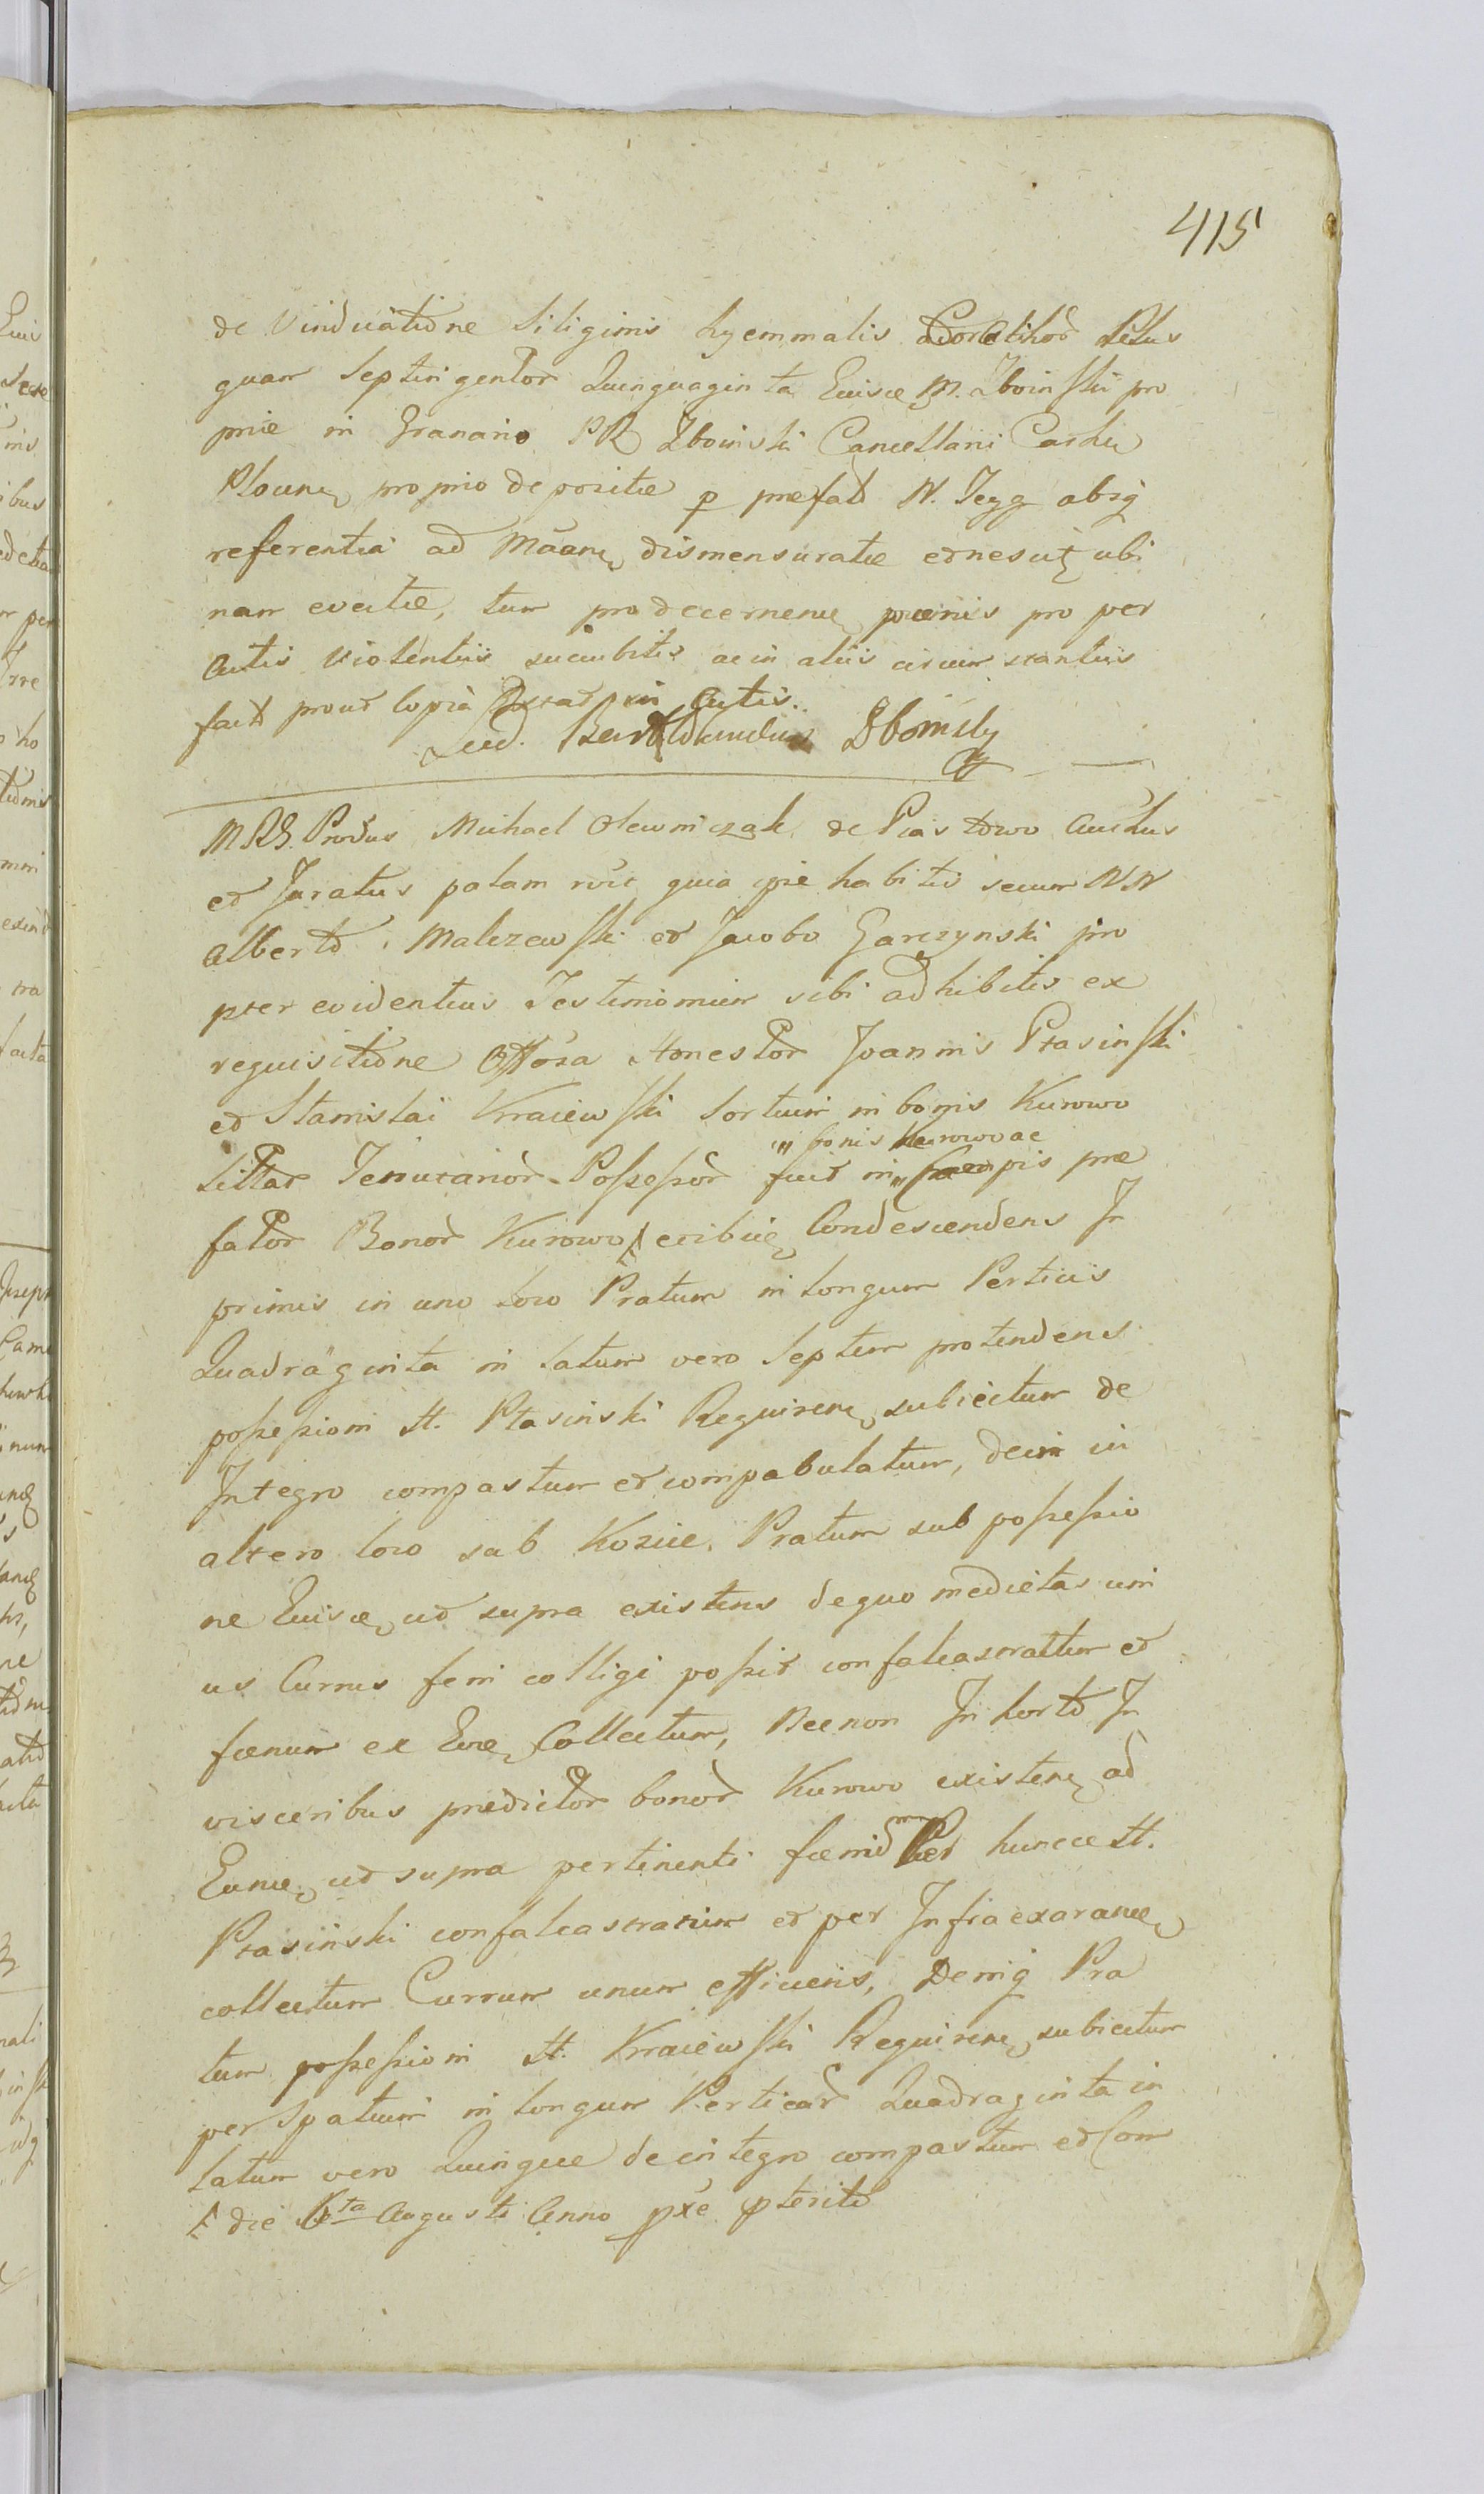 415
de Vindicatione Siliginis hyemmalis plus
quam Septingentor Quinquaginta Eiusce M. Zboinski pro
prie in Granario PR Zboinski Cancellarii Cathe
Plocene proprio depositae p prefatd N. Jezg absq
referentia ad Mãane dismensuratae et nescit ubi
nam evectae, tum pro decernene paenis pro per
actis Violentiis sucubitis ac in aliis circumstantiis
factd prout copia in Actis.
Zboinsky
MRG. Produs Michael Olewniczak de Piastowo Auchus
et Juratus palam rõit quia ipse habitis secum NN
Albertd Malczewski et Jacobo Garczynski pro
pter evidentius Testimonium sibi adhibitis ex
requisitione Offõsa Honestor Joannis Ptasinski
et Stanislai Kraiewski Sortium in bonis Kurowo
" bonis Kurowo ac
sittar Tenutarior Possessor fuit in " Campis prae
fator Bonor Kurowo eribie Condescendens In
primis in uno loco Pratum in longum Perticis
Quadraginta in latum vero Septem protendens
possessioni H. Ptasinski Requirene subiectum de
Integro compastum et compabulatum, dein in
altero loco sub Kozice Pratum sub possessio
ne Eiusce ut supra existens de quo medietas uni
us Currus feni colligi possit confalcastratum et
faenum ex Eoe Collectum, Necnon In hortd In
visceribus predictor bonor Kurowo existene ad
Eunce ut supra pertinenti faenid Per huncce H.
Ptasinski confalcastratum et per Infraexarance
collectum Currum unum efficiens, Deniq Pra
tum possessioni H. Kraiewski Requirene subiectum
per Spatium in longum Perticar Quadraginta in
latum vero Quinque de integro compastum et Com
die 6ta Augusti Anno pxe pteritd